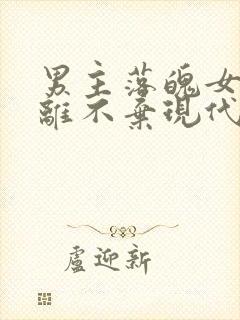 男主落魄女
離不棄現代
盧迎新